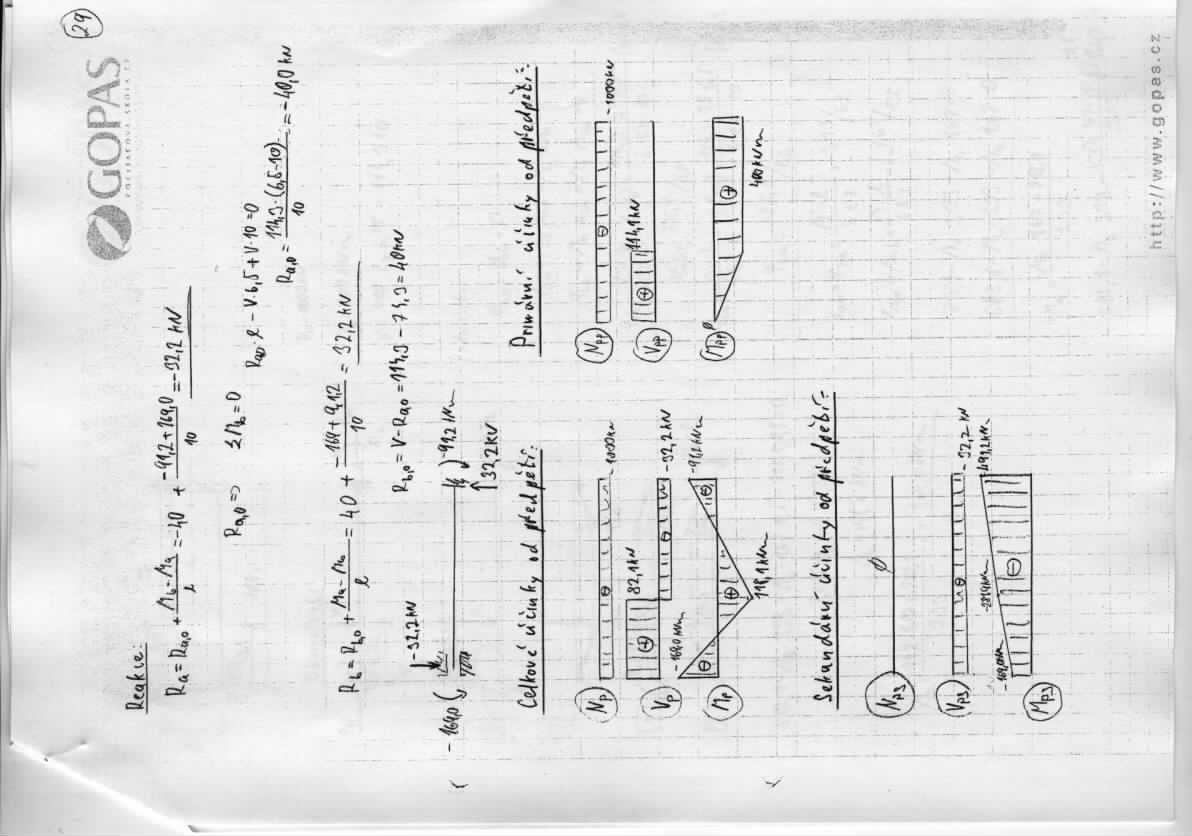 29
GOPAS
POČÍTAČOVÁ ŠKOLA
Reakce:
Ra = Ra,0 + (Mb - Ma)/l = -40 + (-91,2 + 169,0)/10 = -32,2 kN
Ra,0 => ΣMb = 0
Ra,0 · l - V · 6,5 + V · 10 = 0
Ra,0 = 114,3 · (6,5 - 10)/10 = -40,0 kN
Rb = Rb,0 + (Ma - Mb)/l = 40 + (-169 + 91,2)/10 = 32,2 kN
Rb,0 = V - Ra,0 = 114,3 - 74,3 = 40 kN
-169,0
-32,2 kN
-91,2 kNm
32,2 kN
Celkové účinky od předpětí:
Np
⊖
-1000 kN
Vp
⊕
82,1 kN
⊖
-32,2 kN
Mp
⊖
-169,0 kNm
⊕
118,1 kNm
⊖
-91,2 kNm
Primární účinky od předpětí:
Npp
⊖
-1000 kN
Vpp
⊕
114,1 kN
Mpp
ø
⊕
400 kNm
Sekundární účinky od předpětí:
Nps
ø
Vps
⊖
-32,2 kN
Mps
-169,0 kNm
⊖
-491,2 kNm
http://www.gopas.cz